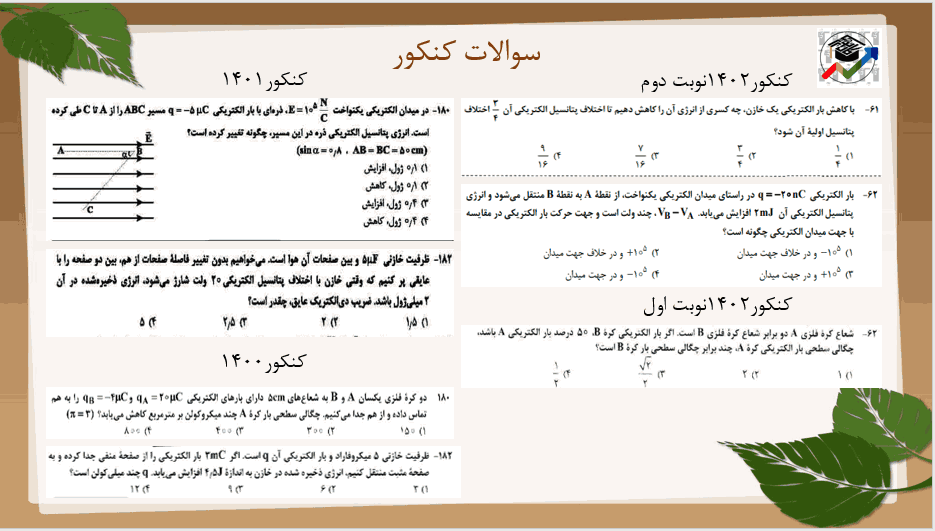 سوالات کنکور
کنکور۱۴۰۲نوبت دوم
۶۱- با کاهش بار الکتریکی یک خازن، چه کسری از انرژی آن را کاهش دهیم تا اختلاف پتانسیل الکتریکی آن ۳/۴ اختلاف
پتانسیل اولیهٔ آن شود؟
۱) ۱/۴ ۲) ۳/۴ ۳) ۷/۱۶ ۴) ۹/۱۶
۶۲- بار الکتریکی q = −۲۰nC در راستای میدان الکتریکی یکنواخت، از نقطهٔ A به نقطهٔ B منتقل می‌شود و انرژی
پتانسیل الکتریکی آن ۲mJ افزایش می‌یابد. VB − VA، چند ولت است و جهت حرکت بار الکتریکی در مقایسه
با جهت میدان الکتریکی چگونه است؟
۱) −۱۰⁵ و در خلاف جهت میدان ۲) +۱۰⁵ و در خلاف جهت میدان
۳) +۱۰⁵ و در جهت میدان ۴) −۱۰⁵ و در جهت میدان
کنکور۱۴۰۲نوبت اول
۶۲- شعاع کرهٔ فلزی A دو برابر شعاع کرهٔ فلزی B است. اگر بار الکتریکی کرهٔ B، ۵۰ درصد بار الکتریکی A باشد،
چگالی سطحی بار الکتریکی کرهٔ A، چند برابر چگالی سطحی بار کرهٔ B است؟
۱) ۱ ۲) ۲ ۳) √۲/۲ ۴) ۱/۲
کنکور۱۴۰۱
۱۸۰- در میدان الکتریکی یکنواخت E = ۱۰⁵ N/C، ذره‌ای با بار الکتریکی q = −۵ μC مسیر ABC را از A تا C طی کرده
است. انرژی پتانسیل الکتریکی ذره در این مسیر، چگونه تغییر کرده است؟
(sin α = ۰٫۸ ، AB = BC = ۵۰cm)
۱) ۰٫۱ ژول، افزایش
۲) ۰٫۱ ژول، کاهش
۳) ۰٫۴ ژول، افزایش
۴) ۰٫۴ ژول، کاهش
E
A α B
C
۱۸۲- ظرفیت خازنی ۵μF و بین صفحات آن هوا است. می‌خواهیم بدون تغییر فاصلهٔ صفحات از هم، بین دو صفحه را با
عایقی پر کنیم که وقتی خازن با اختلاف پتانسیل الکتریکی ۲۰ ولت شارژ می‌شود، انرژی ذخیره‌شده در آن
۲ میلی‌ژول باشد. ضریب دی‌الکتریک عایق، چقدر است؟
۱) ۱٫۵ ۲) ۲ ۳) ۲٫۵ ۴) ۵
کنکور۱۴۰۰
۱۸۰ دو کرهٔ فلزی یکسان A و B به شعاع‌های ۵cm دارای بارهای الکتریکی qA = ۲۰μC و qB = −۴μC را به هم
تماس داده و از هم جدا می‌کنیم. چگالی سطحی بار کرهٔ A چند میکروکولن بر مترمربع کاهش می‌یابد؟ (π = ۳)
۱) ۱۵۰ ۲) ۳۰۰ ۳) ۴۰۰ ۴) ۸۰۰
۱۸۲- ظرفیت خازنی ۵ میکروفاراد و بار الکتریکی آن q است. اگر ۳mC بار الکتریکی را از صفحهٔ منفی جدا کرده و به
صفحهٔ مثبت منتقل کنیم، انرژی ذخیره شده در خازن به اندازهٔ ۴٫۵J افزایش می‌یابد. q چند میلی‌کولن است؟
۱) ۳ ۲) ۶ ۳) ۹ ۴) ۱۲